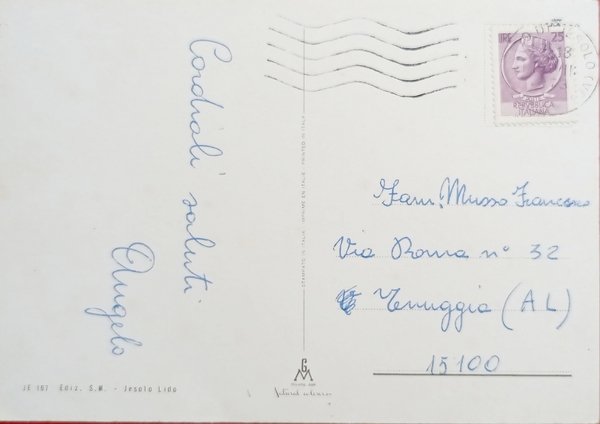 Cordiali saluti
Angelo
LIRE 25
POSTE
REPVBBLICA
ITALIANA
Fam. Musso Francesco
Via Roma n° 32
Tenuggia (AL)
15100
JE 107 Ediz. S.M. - Jesolo Lido